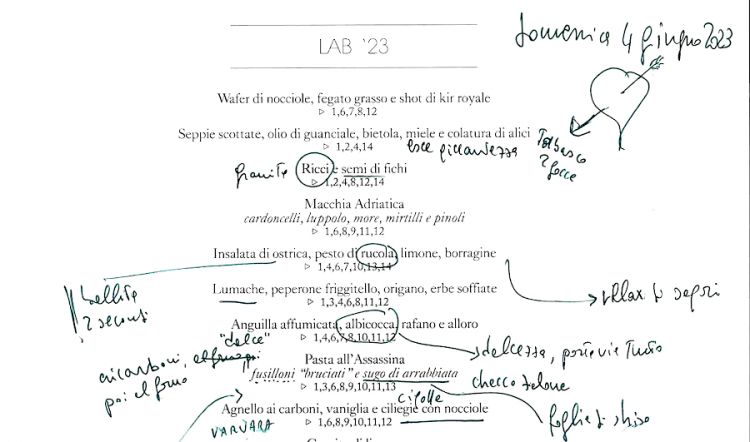 domenica 4 giugno 2023
LAB '23
Wafer di nocciole, fegato grasso e shot di kir royale
▷ 1,6,7,8,12
Seppie scottate, olio di guanciale, bietola, miele e colatura di alici
▷ 1,2,4,14
esce piccantezza
Tabasco
2 gocce
granita
Ricci e semi di fichi
▷ 1,2,4,8,12,14
Macchia Adriatica
cardoncelli, luppolo, more, mirtilli e pinoli
▷ 1,6,8,9,11,12
Insalata di ostrica, pesto di rucola, limone, borragine
▷ 1,4,6,7,10,13,14
Lumache, peperone friggitello, origano, erbe soffiate
▷ 1,3,4,6,8,11,12
bollite
2 secondi
relax di sapori
Anguilla affumicata, albicocca, rafano e alloro
▷ 1,4,6,7,8,10,11,12
"dolce"
ai carboni,
poi al forno
dolcezza, porta via tutto
Pasta all'Assassina
fusilloni "bruciati" e sugo di arrabbiata
▷ 1,3,6,8,9,10,11,13
checco zalone
cipolle
Agnello ai carboni, vaniglia e ciliegie con nocciole
▷ 1,6,8,9,10,11,12
VARVARA
foglia di shiso